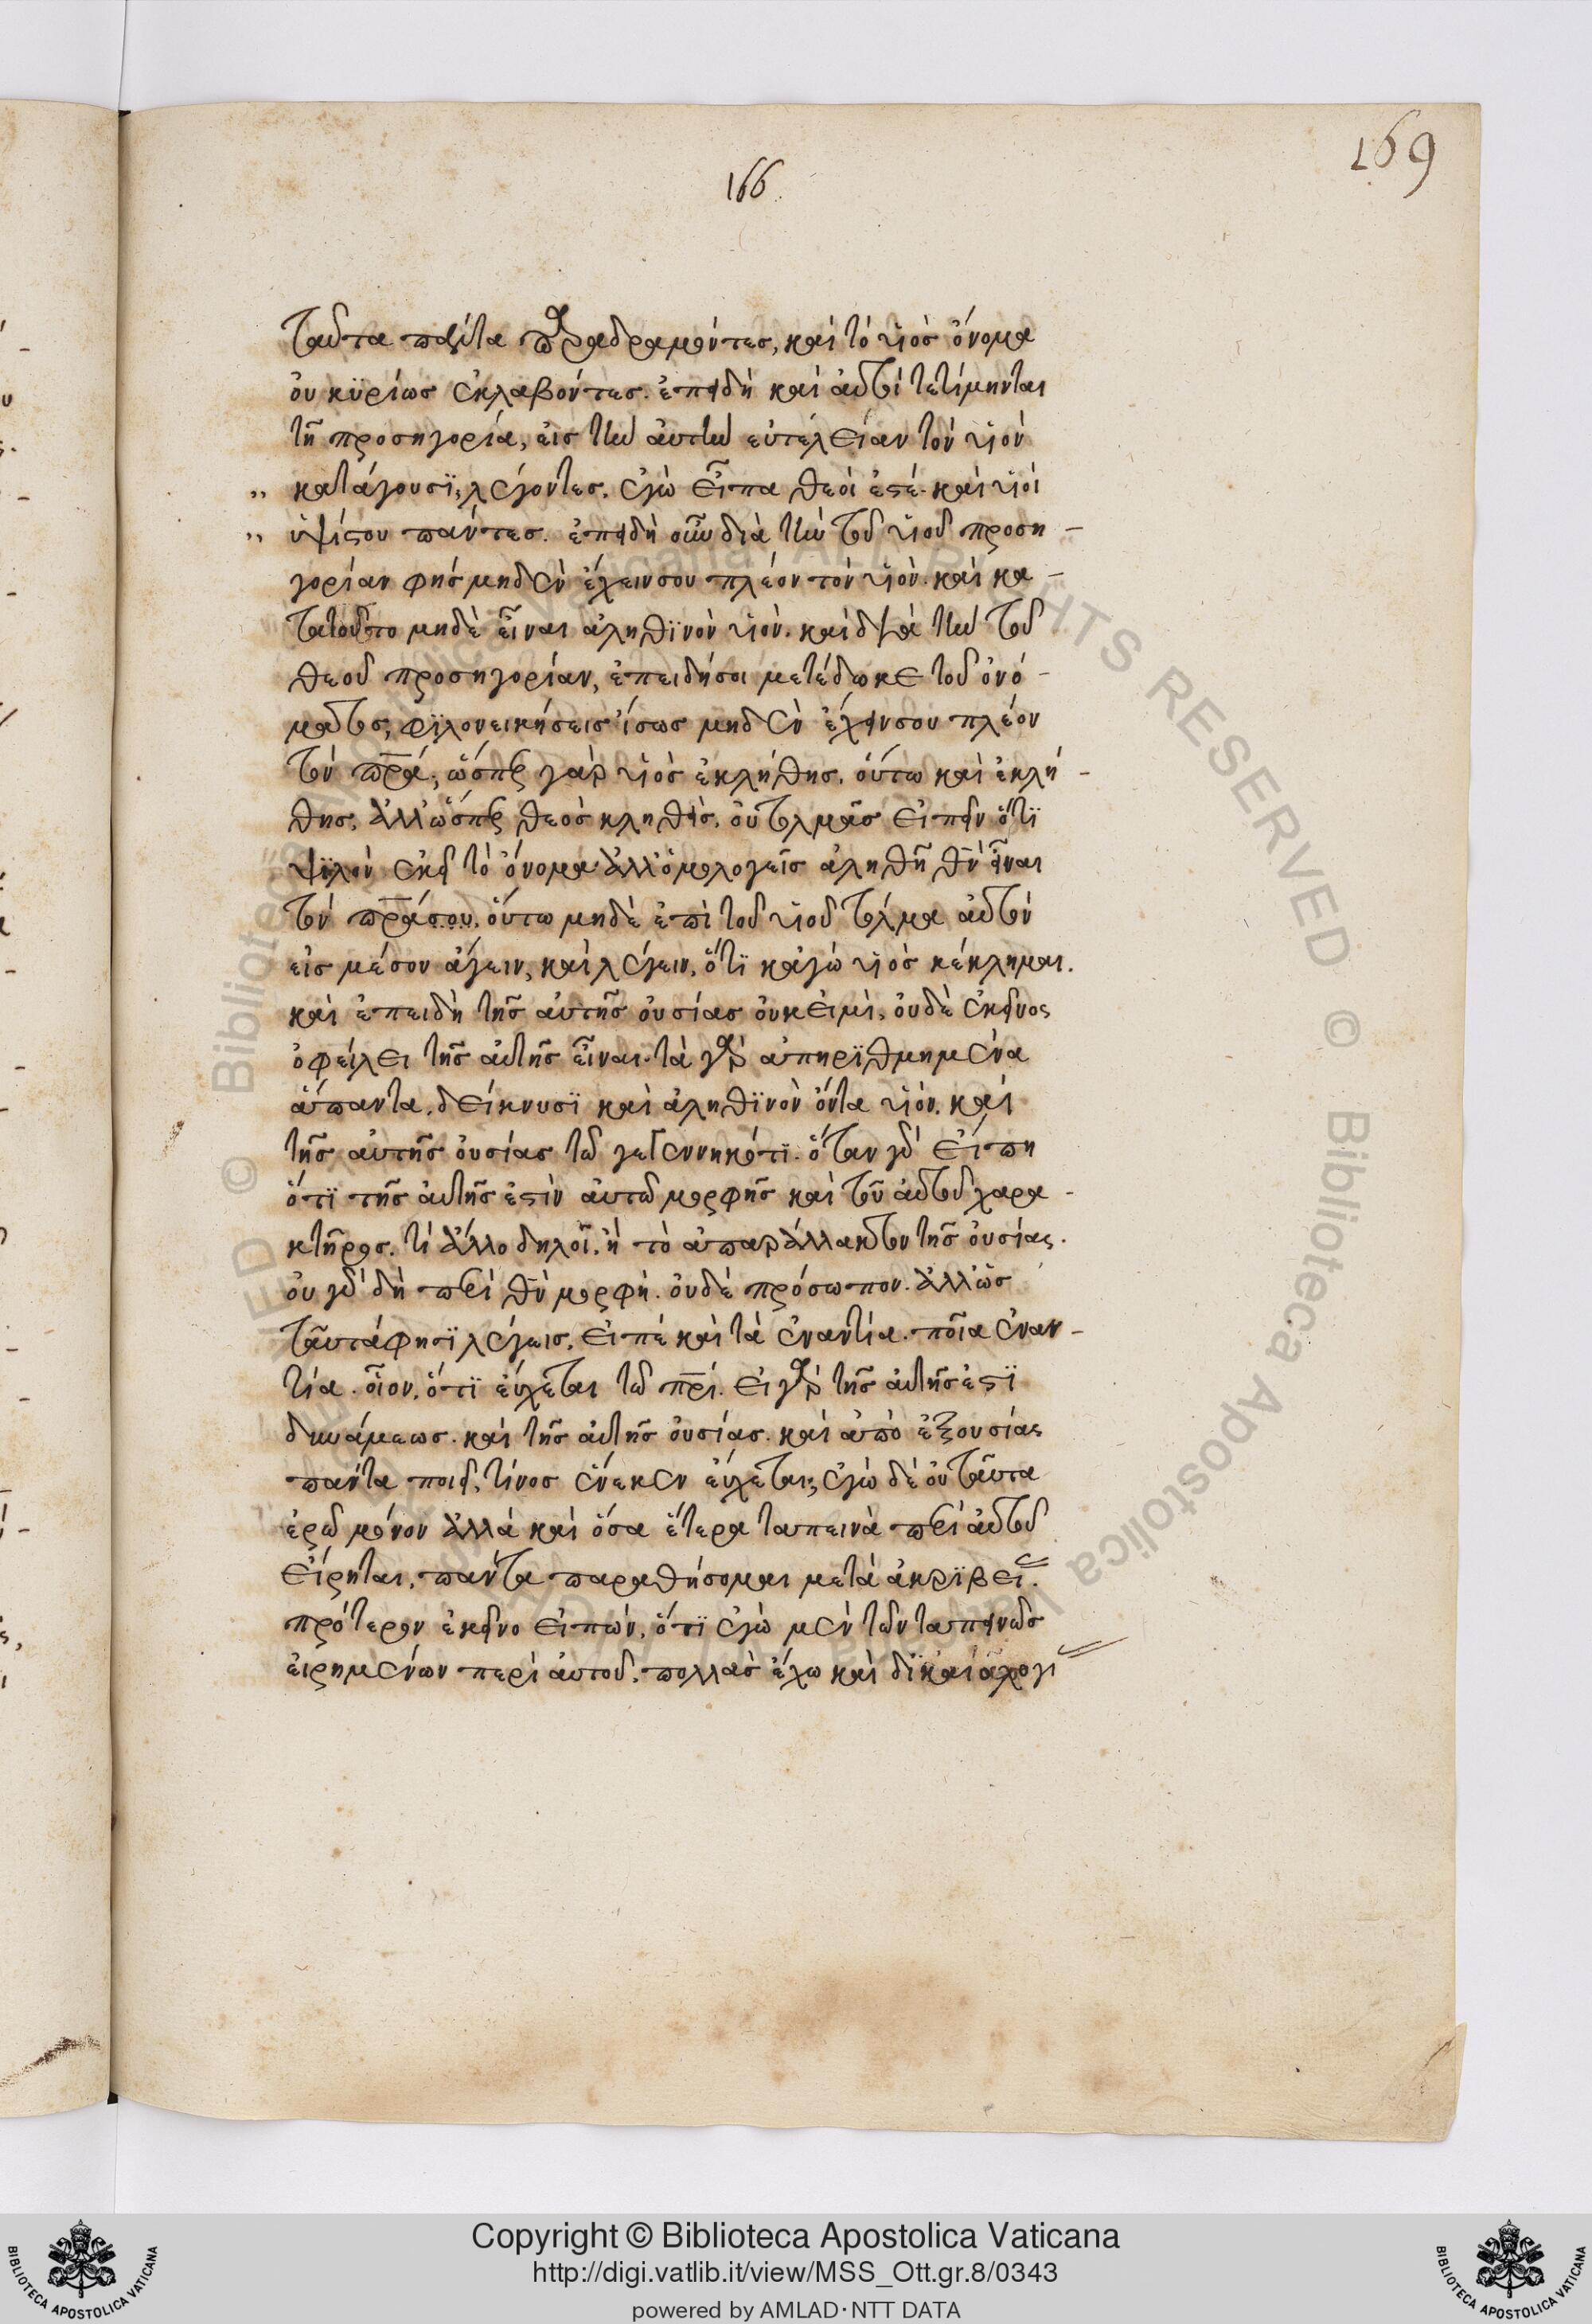 169
166
ταῦτα πάντα παραδραμόντες, καὶ τὸ υἱὸς ὄνομα
οὐ κυρίως ἐκλαβόντες. ἐπειδὴ καὶ αὐτοὶ τετίμηνται
τῇ προσηγορίᾳ, εἰς τὴν αὐτὴν εὐτέλειαν τὸν υἱὸν
„ κατάγουσϊ, λέγοντες. ἐγὼ εἶπα θεοί ἐστέ. καὶ υἱοὶ
„ ὑψίστου πάντες. ἐπειδὴ οὖν διὰ τὴν τοῦ υἱοῦ προση-
γορίαν φῂς μηδὲν ἔχειν σου πλέον τὸν υἱὸν. καὶ κα-
τατοῦτο μηδὲ εἶναι ἀληθϊνὸν υἱὸν. καὶ διὰ τὴν τοῦ
θεοῦ προσηγορίαν, ἐπειδή σοι μετέδωκε τοῦ ὀνό-
ματος, φϊλονεικήσεις ἴσως μηδὲν ἔχειν σου πλέον
τὸν πρ̅α, ὥσπερ γὰρ υἱὸς ἐκλήθης. οὕτω καὶ ἐκλή-
θης, ἀλλ' ὥσπερ θεὸς κληθεὶς, οὐ τολμᾶς εἰπεῖν ὅτϊ
ψϊλὸν ἐκεῖ τὸ ὄνομα. ἀλλ' ὁμολογεῖς ἀληθῆ θ̅ν εἶναι
τὸν πρ̅α σου, οὕτω μηδὲ ἐπὶ τοῦ υἱοῦ τόλμα αὐτὸν
εἰς μέσον ἄγειν, καὶ λέγειν, ὅτϊ κἀγὼ υἱὸς κέκλημαι.
καὶ ἐπειδὴ τῆς αὐτῆς οὐσίας οὐκ εἰμὶ, οὐδὲ ἐκεῖνος
ὀφείλει τῆς αὐτῆς εἶναι. τὰ γὰρ ἀπηρϊθμημένα
ἅπαντα, δείκνυσϊ καὶ ἀληθϊνὸν ὄντα υἱὸν. καὶ
τῆς αὐτῆς οὐσίας τῷ γεγεννηκότϊ. ὅταν γὰρ εἴπη
ὅτϊ τῆς αὐτῆς ἐστὶν αὐτῷ μορφῆς καὶ τοῦ αὐτοῦ χαρα-
κτῆρος. τί ἄλλο δηλοῖ, ἢ τὸ ἀπαράλλακτον τῆς οὐσίας.
οὐ γὰρ δὴ περὶ θ̅ν μορφὴ. οὐδὲ πρόσωπον. ἀλλ' ὡς
ταῦτά φησϊ λέγεις, εἰπὲ καὶ τὰ ἐναντία. ποῖα ἐναν-
τία. οἷον, ὅτϊ εὔχεται τῷ πρ̅ι. εἰ γὰρ τῆς αὐτῆς ἐστϊ
δυνάμεως. καὶ τῆς αὐτῆς οὐσίας. καὶ ἀπὸ ἐξουσίας
πάντα ποιεῖ, τίνος ἕνεκεν εὔχεται; ἐγὼ δὲ οὐ ταῦτα
ἐρῶ μόνον ἀλλὰ καὶ ὅσα ἕτερα ταπεινὰ περὶ αὐτοῦ
εἴρηται, πάντα παραθήσομαι μετὰ ἀκρϊβείας.
πρότερον ἐκεῖνο εἰπὼν, ὅτϊ ἐγὼ μὲν τῶν ταπεινῶς
εἰρημένων περὶ αὐτοῦ, πολλὰς ἔχω καὶ δϊκαίας λογι
Copyright © Biblioteca Apostolica Vaticana
http://digi.vatlib.it/view/MSS_Ott.gr.8/0343
powered by AMLAD·NTT DATA
BIBLIOTECA APOSTOLICA VATICANA
BIBLIOTECA APOSTOLICA VATICANA